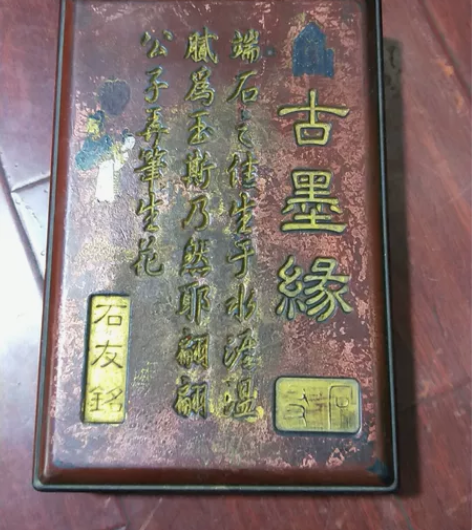 古墨緣
端石之佳生于水涯温
膩爲玉斯乃然耶翩翩
公子弄筆生花
石友銘